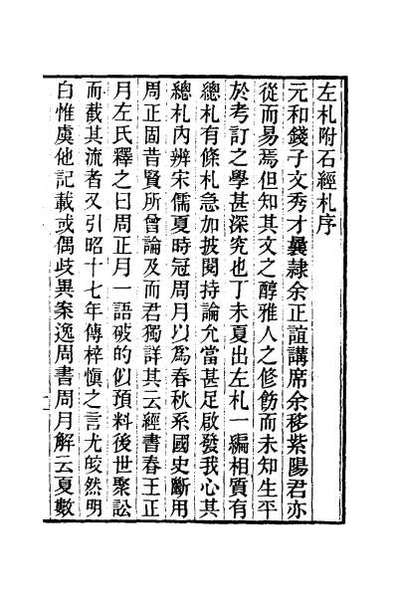 左札附石經札序
元和錢子文秀才曩隸余正誼講席余移紫陽君亦
從而易焉但知其文之醇雅人之修飭而未知生平
於考訂之學甚深究也丁未夏出左札一編相質有
總札有條札急加披閱持論允當甚足啟發我心其
總札內辨宋儒夏時冠周月以爲春秋系國史斷用
周正固昔賢所曾論及而君獨詳其云經書春王正
月左氏釋之曰周正月一語破的似預料後世聚訟
而截其流者又引昭十七年傳梓愼之言尤皎然明
白惟虞他記載或偶歧異案逸周書周月解云夏數